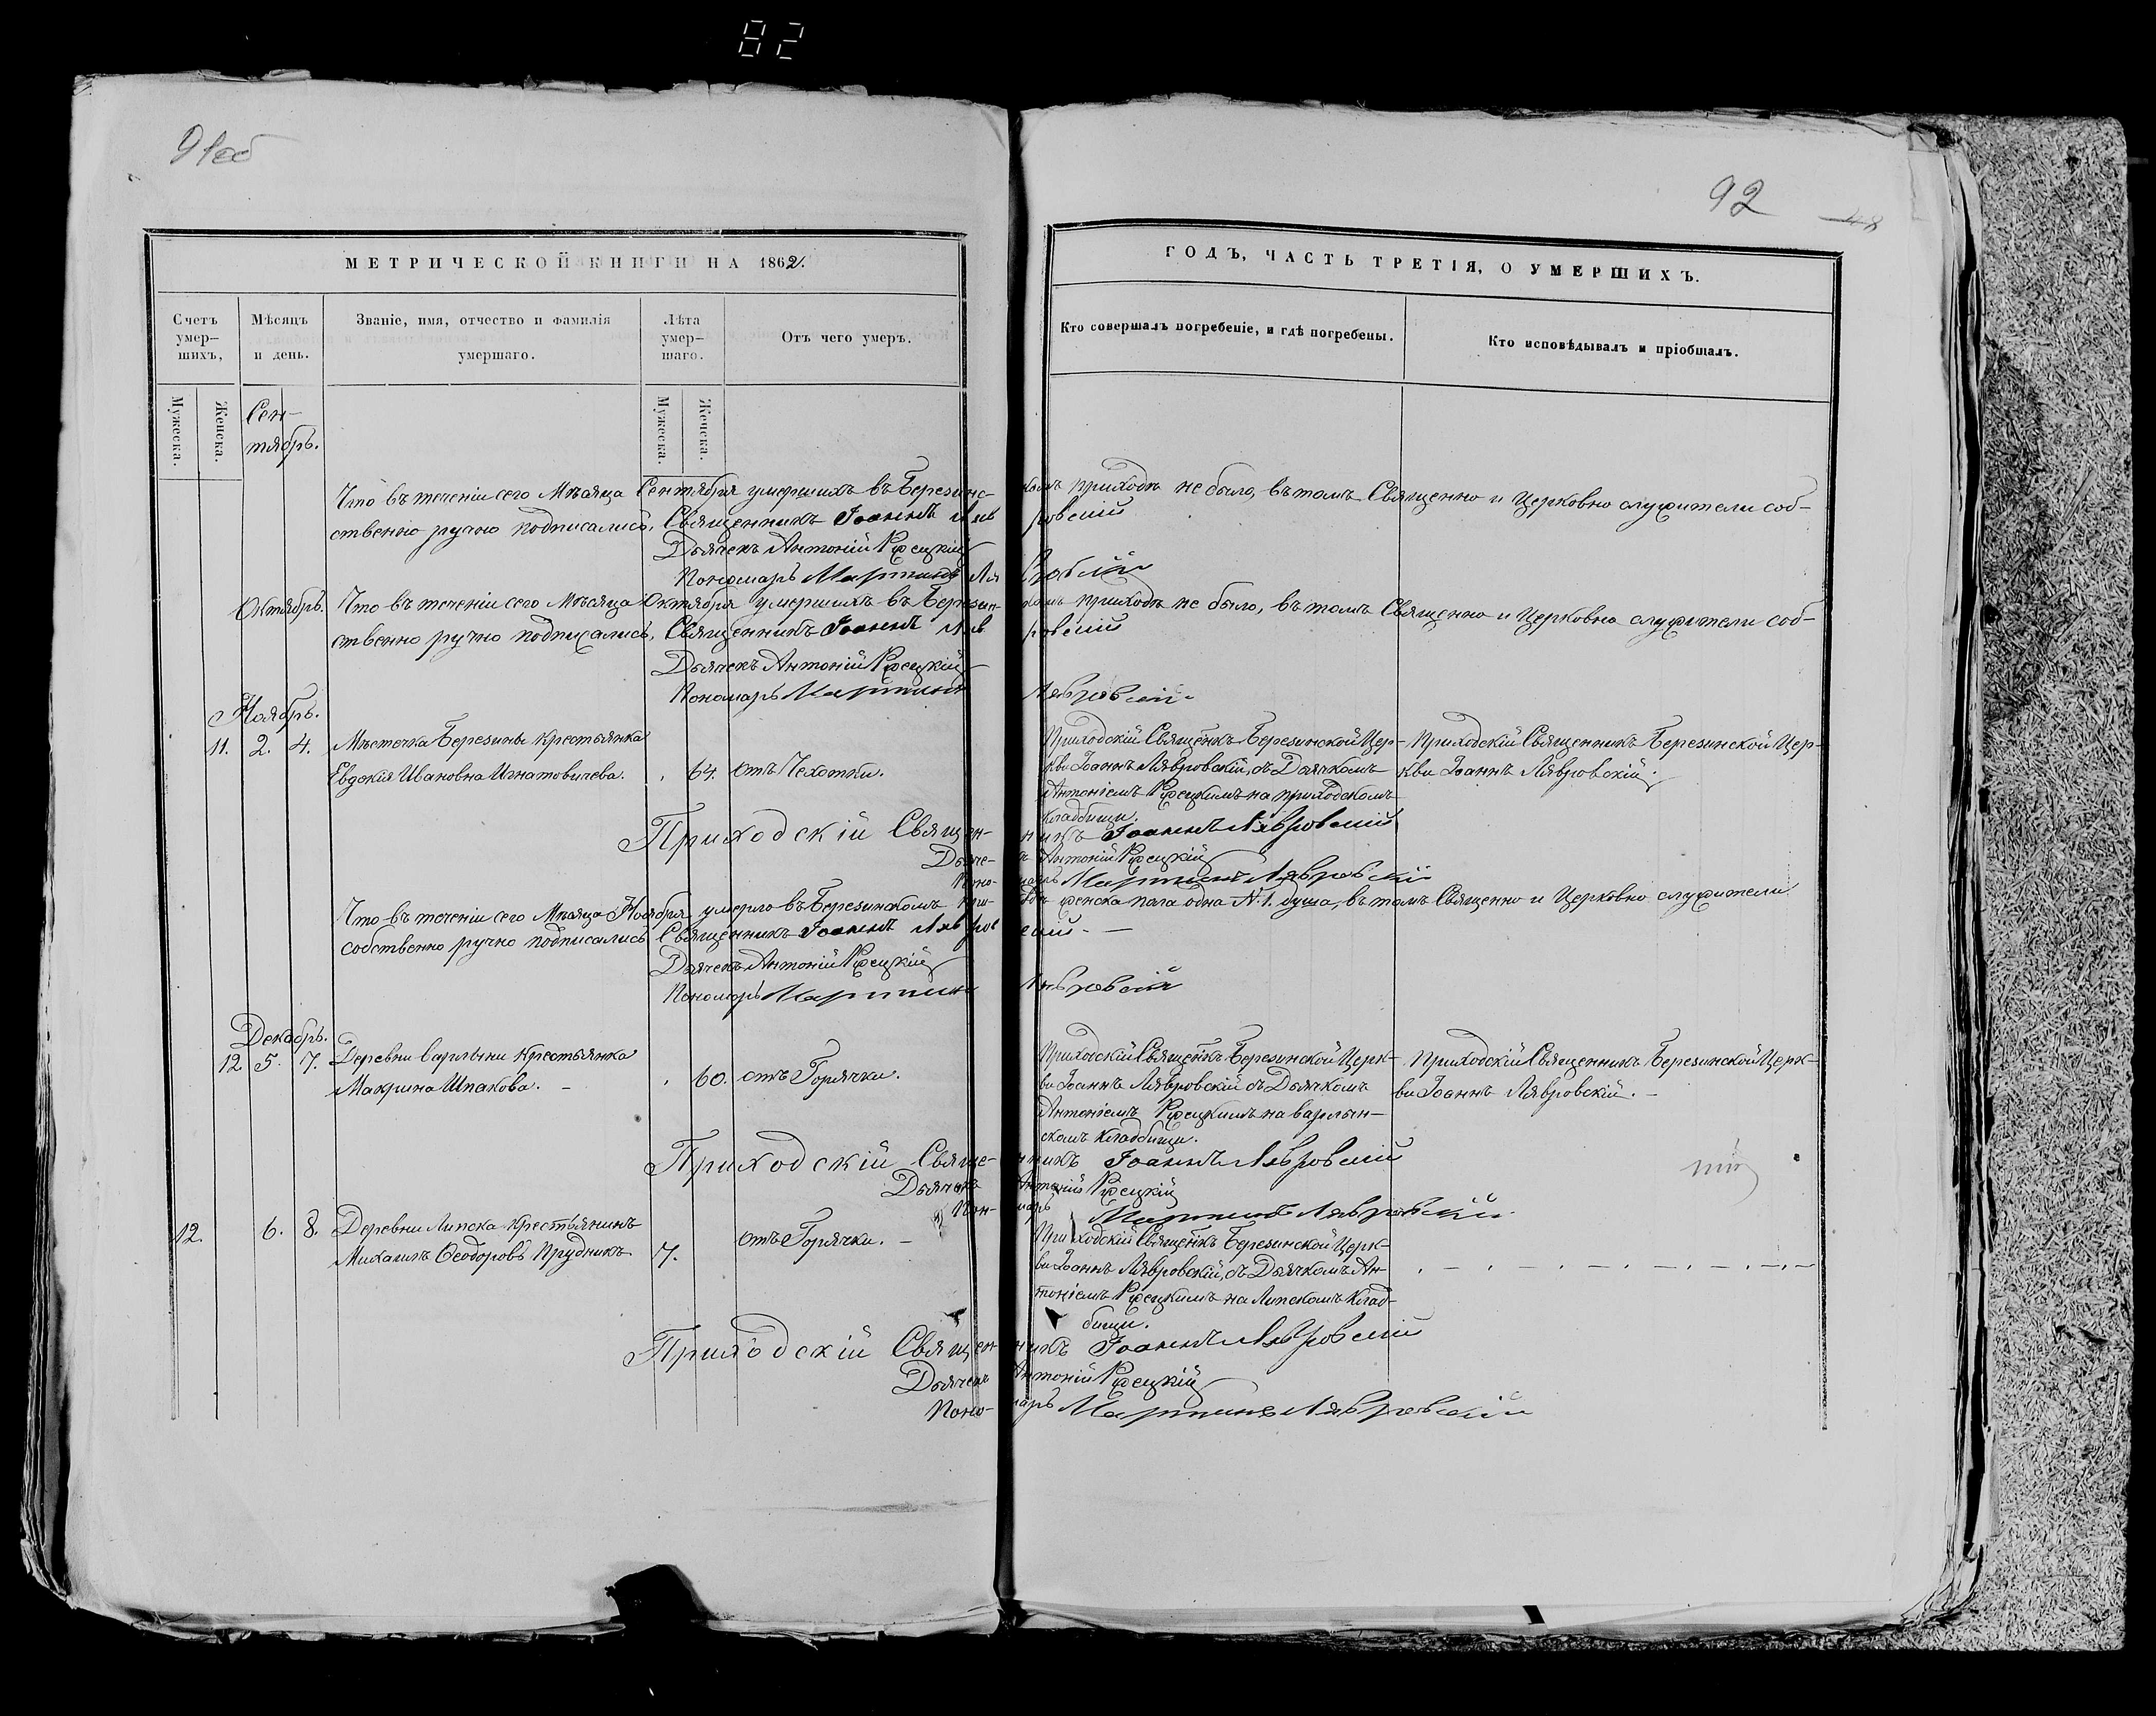 82
91об
92
48
МЕТРИЧЕСКОЙ КНИГИ НА 1862.
ГОДЪ, ЧАСТЬ ТРЕТІЯ, О УМЕРШИХЪ.
Счетъ умер–шихъ,
Мѣсяцъ и день.
Званіе, имя, отчество и фамилія умершаго.
Лѣта умер–шаго.
Отъ чего умеръ.
Кто совершалъ погребеніе, и гдѣ погребены.
Кто исповѣдывалъ и пріобщалъ.
Мужеска.
Женска.
Мужеска.
Женска.
Сен–
тябрь.
Что въ теченіи сего Мѣсяца Сентября умершихъ въ Березинс–комъ приходѣ не было, въ томъ Священно и Церковно служители соб–
ственно ручно подписались, Священникъ Іоаннъ Лявровскій
Дьячекъ Антоній
Пономарь Мартинъ Лявровскій
Октябрь. Что въ теченіи сего Мѣсяца Октября умершихъ въ Березин–комъ приходѣ не было, въ томъ Священно и Церковно служители соб–
ственно ручно подписались, Священникъ Іоаннъ Лявровскій
Дьячекъ Антоній
Пономарь Мартинъ Лявровскій
Ноябрь.
11. 2. 4. Мѣстечка Березины крестьянка
Евдокія Ивановна Игнатовичева. 64. отъ Чехотки.
Приходскій Священикъ Березинской Цер–
кви Іоаннъ Лявровскій, съ Дьячкомъ
Антоніемъ на приходскомъ
кладбищи.
Приходскій Священникъ Березинской Цер–
кви Іоаннъ Лявровскій.
Приходскій Священ–никъ Іоаннъ Лявровскій
Дьяче–къ Антоній
Поно–марь Мартинъ Лявровскій
Что въ теченіи сего Мѣсяца Ноября умерло въ Березинскомъ при–ходѣ женска пола одна №1. душа, въ томъ Священно и Церковно служители
собственно ручно подписались Священникъ Іоаннъ Лявровскій. –
Дьячекъ Антоній
Пономарь Мартинъ Лявровскій
Декабрь.
12 5. 7. Деревни Варлыни Крестьянка
Макрина Шпакова. – 60. отъ Горячки.
Приходскій Священикъ Березинской Церк–
ви Іоаннъ Лявровскій съ Дьячкомъ
Антоніемъ на варлын–
скомъ кладбищи.
Приходскій Священникъ Березинской Церк–
ви Іоаннъ Лявровскій. –
Приходскій Свяще–нникъ Іоаннъ Лявровскій
Дьячекъ Антоній
Пон–марь Мартинъ Лявровскій
12. 6. 8. Деревни Липска Крестьянинъ
Михаилъ Ѳеодоровъ Прудникъ 7. отъ Горячки. –
Приходскій Священикъ Березинской Церк–
ви Іоаннъ Лявровскій, съ Дьячкомъ Ан–
тоніемъ на Липскомъ Клад–
бищи.
Приходскій Священникъ Іоаннъ Лявровскій
Дьячекъ Антоній
Поно–марь Мартинъ Лявровскій